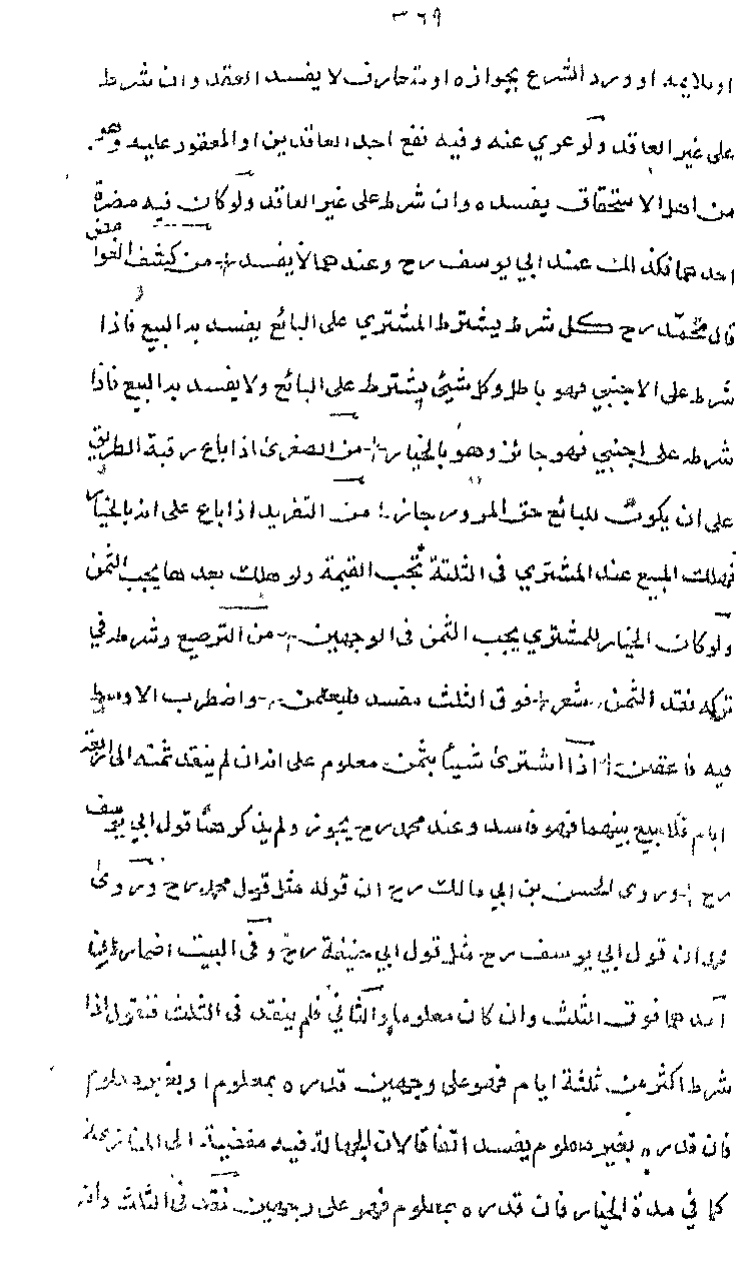 ٣٦٩
او يلايمه او ورد الشرع بجوازه او متعارف لا يفسد العقد وان شرط
على غير العاقد ولو عري عنه وفيه نفع احد العاقدين او المعقود عليه وهو
من اهل الاستحقاق يفسده وان شرط على غير العاقد ولو كان فيه مضرة
احدهما فكذلك عند ابي يوسف رح وعندهما لا يفسد من كشف الغوامض
قال محمد رح كل شرط يشترط المشتري على البائع يفسد به البيع فاذا
شرط على الاجنبي فهو باطل وكل شيئ يشترط على البائع ولا يفسد به البيع فاذا
شرط على اجنبي فهو جائز وهو بالخيار من الصغرى اذا باع رقبة الطريق
على ان يكون للبائع حق المرور جاز من التفريد اذا باع على انه بالخيار
فهلك المبيع عند المشتري فى الثلثة تجب القيمة ولو هلك بعدها يجب الثمن
ولو كان الخيار للمشتري يجب الثمن فى الوجهين من الترصيع وشرطه في
تركه نقد الثمن شعر فوق الثلث مفسد فليعلمن واضطرب الاوسط
فيه اذا اشترى شيأ بثمن معلوم على انه ان لم ينقد ثمنه الى اربعة
ايام فلا بيع بينهما فهو فاسد وعند محمد رح يجوز ولم يذكر هنا قول ابي يوسف
رح وروى الحسن بن ابي مالك رح ان قوله مثل قول محمد رح وروى
ان قول ابي يوسف رح مثل قول ابي حنيفة رح وفى البيت اضمار
احدهما فوق الثلث وان كان معلوما والثاني فلم ينقد فى الثلث فنقول اذا
شرط اكثر من ثلثة ايام فهو على وجهين قدره بمعلوم او بغير معلوم
فان قدره بغير معلوم يفسد اتفاقا لان الجهالة فيه مفضية الى المنازعة
كما في مدة الخيار فان قدره بمعلوم فهو على وجهين نقد فى الثلث وان